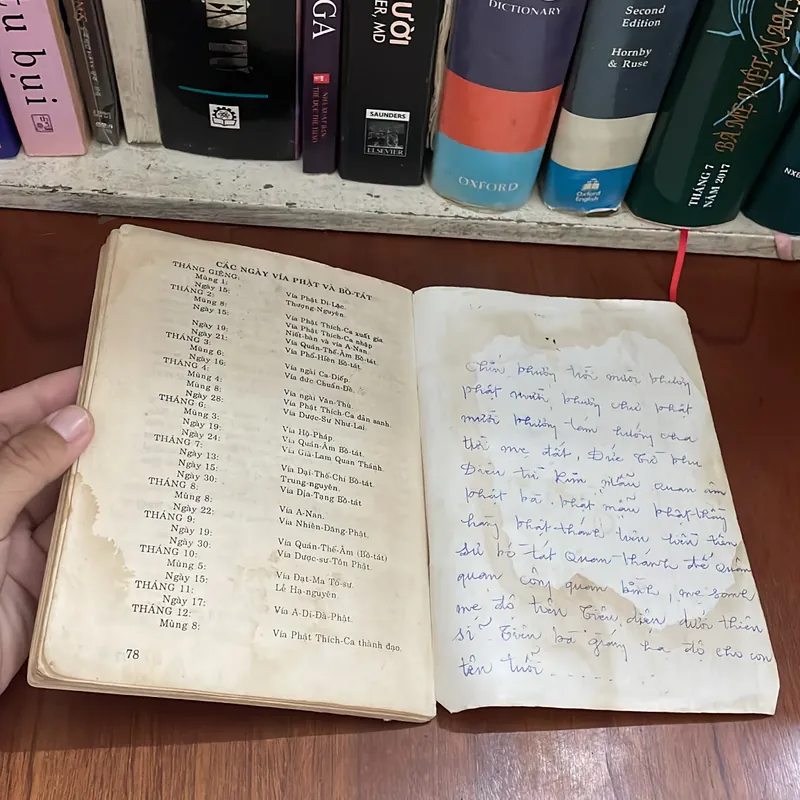 tu bụi
GA
NHÀ XUẤT BẢN
THỂ DỤC THỂ THAO
ƯỜI
ER, MD
SAUNDERS
ELSEVIER
DICTIONARY
OXFORD
Second
Edition
Hornby
& Ruse
Oxford
English
BÀ MẸ VIỆT NAM
THÁNG 7
NĂM 2017
CÁC NGÀY VÍA PHẬT VÀ BỒ-TÁT
THÁNG GIÊNG:
Mùng 1: Vía Phật Di-Lặc.
Ngày 15: Thượng-Nguyên.
THÁNG 2:
Mùng 8: Vía Phật Thích-Ca xuất gia
Ngày 15: Vía Phật Thích-Ca nhập
Niết-bàn và vía A-Nan.
Ngày 19: Vía Quán-Thế-Âm Bồ-tát.
Ngày 21: Vía Phổ-Hiền Bồ-tát.
THÁNG 3:
Mùng 6: Vía ngài Ca-Diếp.
Ngày 16: Vía đức Chuẩn-Đề.
THÁNG 4:
Mùng 4: Vía ngài Văn-Thù.
Mùng 8: Vía Phật Thích-Ca đản sanh.
Ngày 28: Vía Dược-Sư Như-Lai.
THÁNG 6:
Mùng 3: Vía Hộ-Pháp.
Ngày 19: Vía Quán-Âm Bồ-tát.
Ngày 24: Vía Già-Lam Quan Thánh.
THÁNG 7:
Ngày 13: Vía Đại-Thế-Chí Bồ-tát.
Ngày 15: Trung-nguyên.
Ngày 30: Vía Địa-Tạng Bồ-tát
THÁNG 8:
Mùng 8: Vía A-Nan.
Ngày 22: Vía Nhiên-Đăng-Phật.
THÁNG 9:
Ngày 19: Vía Quán-Thế-Âm (Bồ-tát)
Ngày 30: Vía Dược-sư-Tôn Phật.
THÁNG 10:
Mùng 5: Vía Đạt-Ma Tổ-sư.
Ngày 15: Lễ Hạ-nguyên.
THÁNG 11:
Ngày 17: Vía A-Di-Đà-Phật.
THÁNG 12:
Mùng 8: Vía Phật Thích-Ca thành đạo.
78
Chín phương trời mười phương
phật mười phương chư phật
mười phương tam hướng cha
trời mẹ đất, Đức
Diêu trì Kim Mẫu quan âm
phật bà phật mẫu phật
hằng phật thánh tiên
sư bồ tát quan thánh đế quân
quan công quan bình, mẹ sanh
mẹ độ tiên dưới thiên
sĩ bà giáng hạ độ cho con
tên tuổi.......